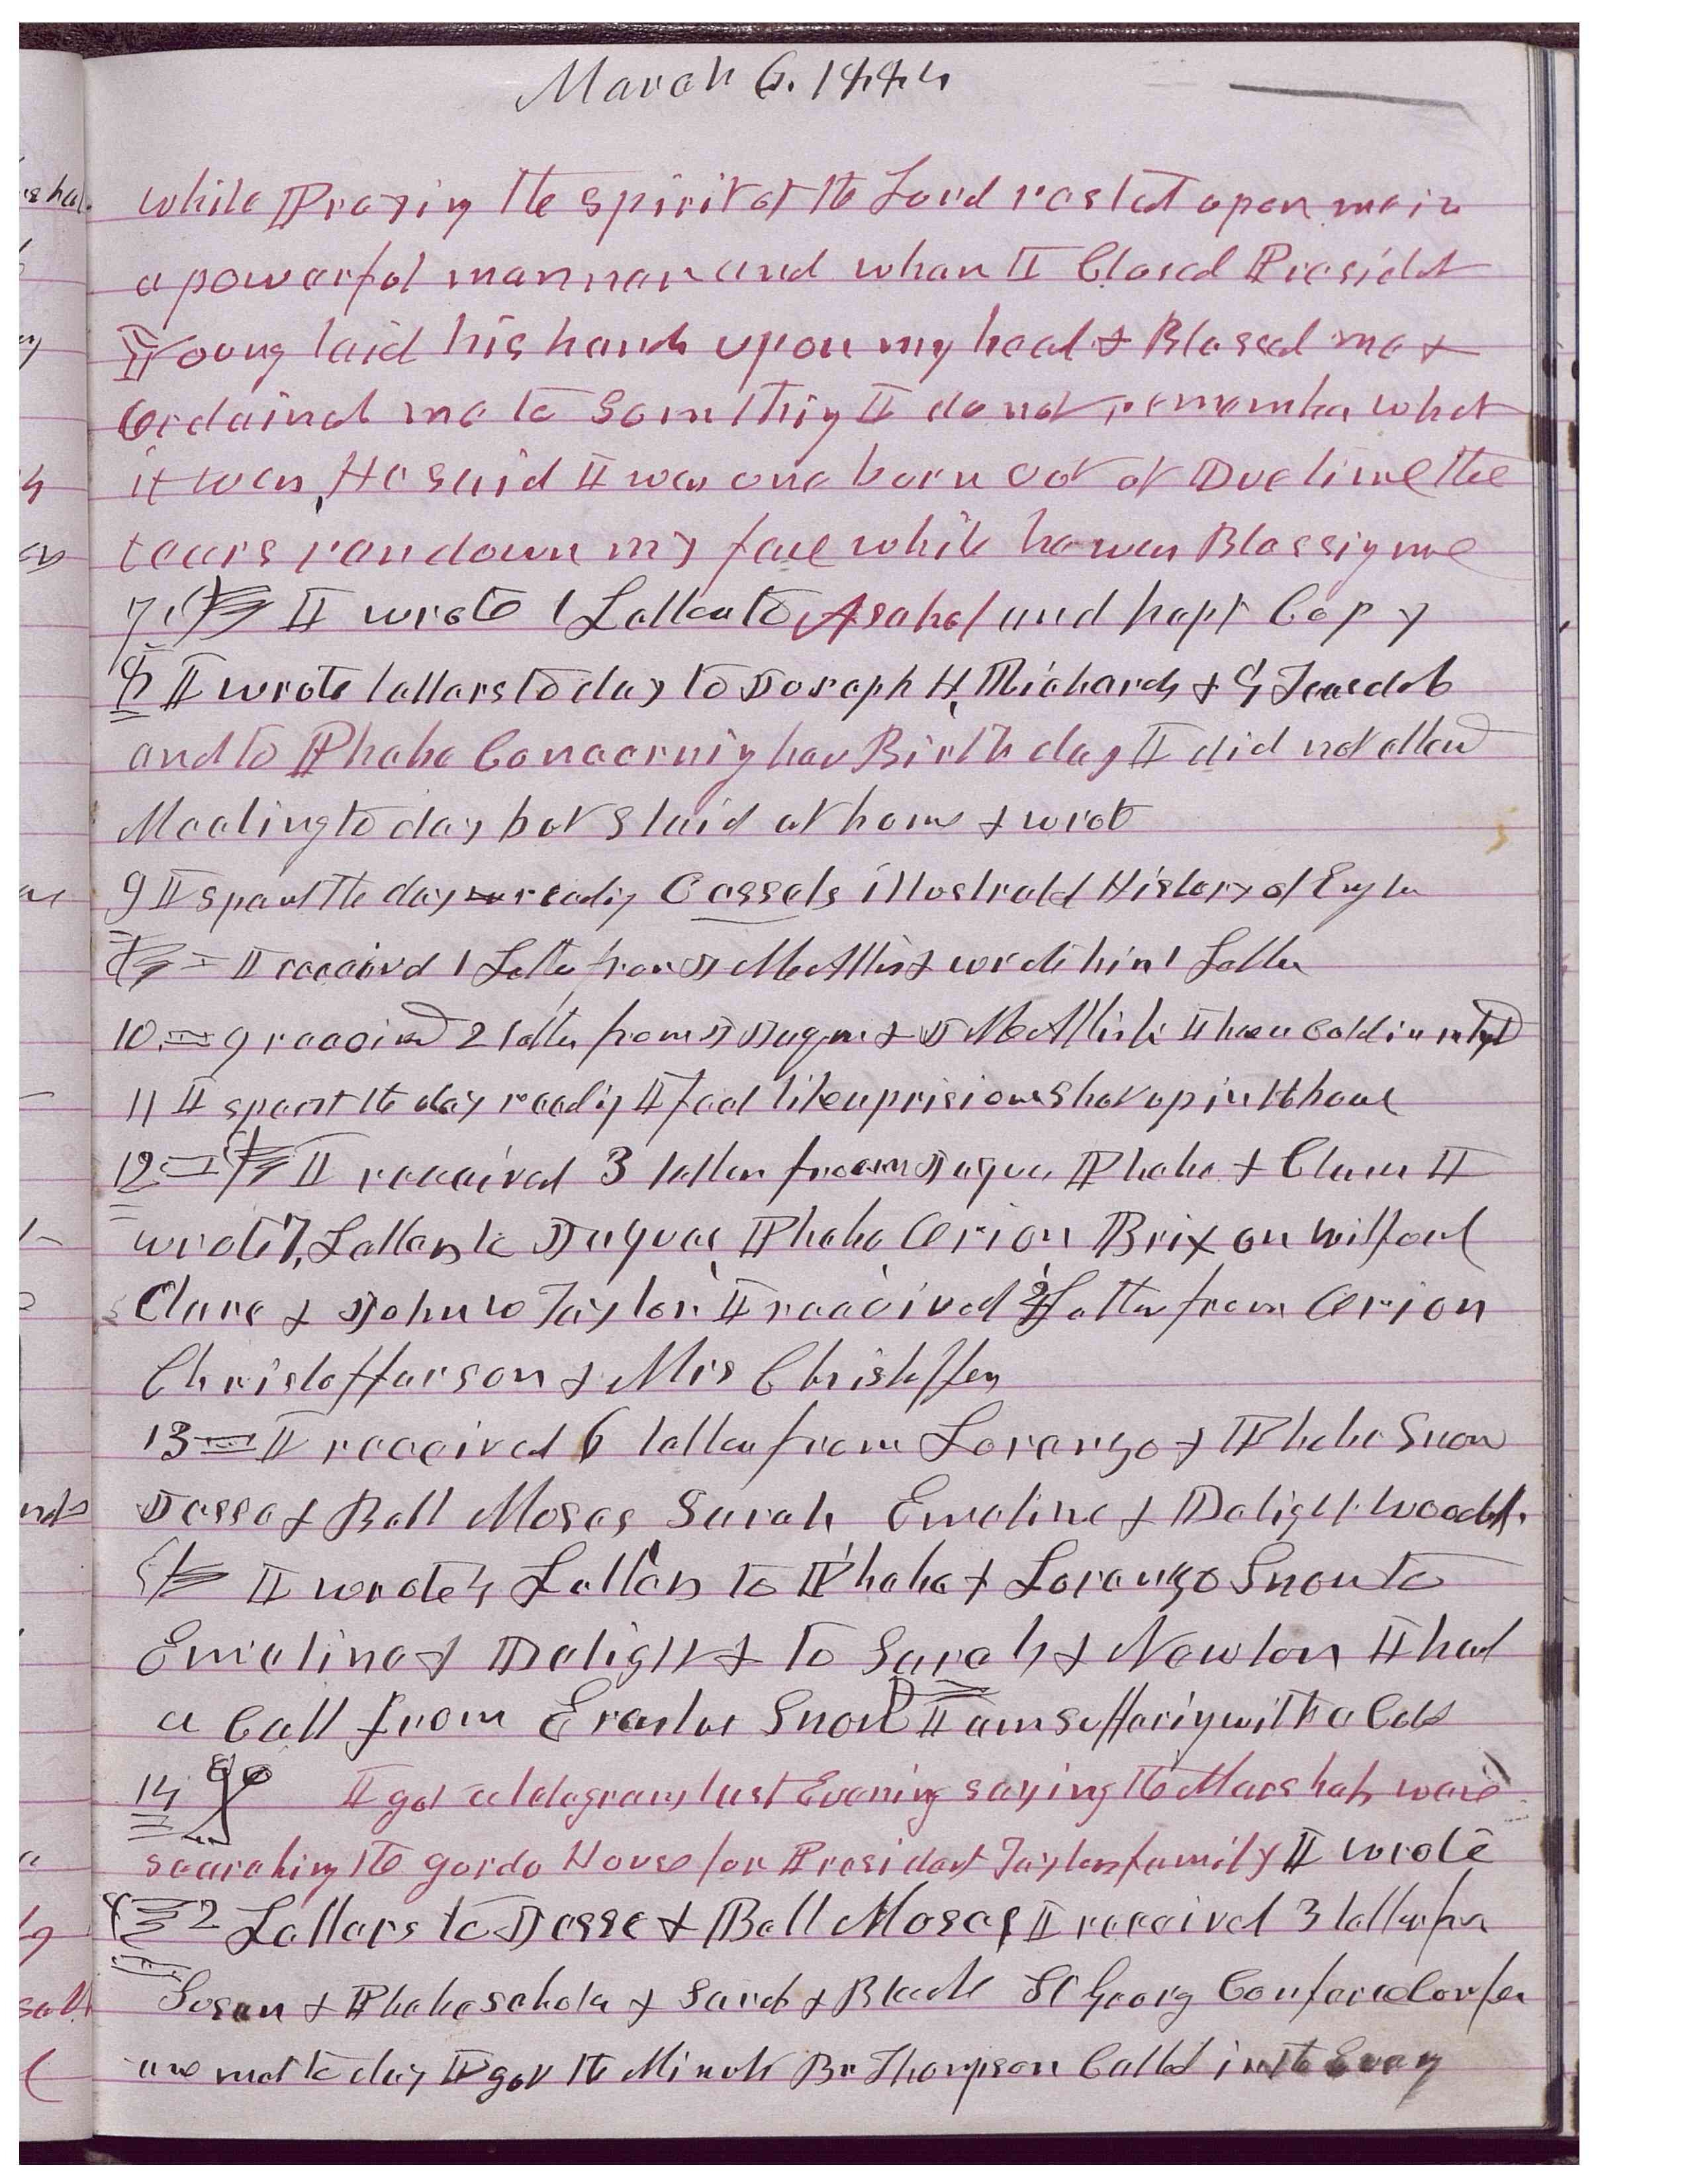 March 6. 1885
while Praying the spirit of the Lord rested upon me in
a powerful manner and when I Closed Presidet
Young laid his hands upon my head & Blessed me &
Ordained me to Something I do not rememba what
it was, He said I was one born out of Due time the
tears ran down my face while he was Blessing me
7 I wrote 1 Letter to Asahel and kept Copy
8 I wrote letters to day to Joseph H, Richards & G Teasdale
and to Phebe Concerning her Birth day I did not attend
Meeting to day but staid at home & wrote
9 I spent the day reading Cassels illustrated History of Engla
I received 1 Letter from J McAllister & wrote him 1 Letter
10 I received 2 letter from J Jaques & J McAllister I have cold in
11 I spent the day reading I feel like a prisioner shut up in the house
12 I received 3 letters from Jaques Phebe & Clara I
wrote 7, Letters to Jaques, Phebe, Orion Brixen Wilford
Clara & John W Taylor. I received 2 Letter from Orion
Christofferson & Mrs Christoffersen
13 I received 6 letters from Lorenzo & Phebe Snow
Jesse & Bell Moses Sarah Emeline & Delight Woodruff.
I wrote 4 Letters to Phebe & Lorenzo Snow to
Emeline & Delight & to Sarah & Newton I had
a Call from Erastus Snow I am suffering with a Cold
14 I got a telegram last Evening saying the Marshals were
searching the gardo House for President Taylors family I wrote
2 Letters to Jesse & Bell Moses I received 3 letters from
Susan & Phebe Scholes & Sarah & Blanch St George Conference Confer
ence met to day I got the Minute Br Thompson Called in the Eveng